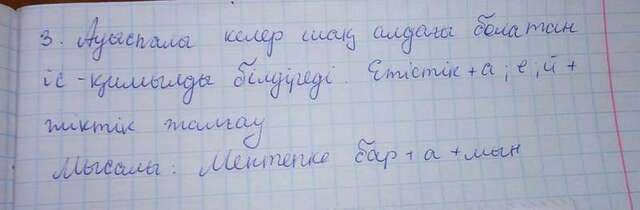 3. Ауыспалы келер шақ алдағы болатын
іс-қимылды білдіреді. Етістік + а; е; й +
жіктік жалғау
Мысалы: Мектепке бар + а + мын